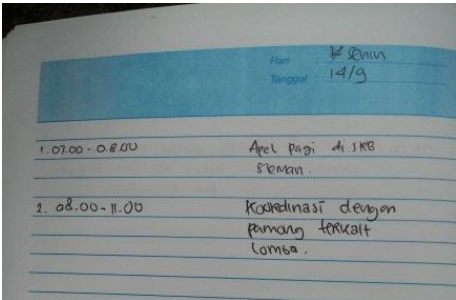 Hari : Senin
Tanggal : 14/9
1. 07.00 - 08.00 Apel pagi di SKB
Sleman.
2. 08.00 - 11.00 Koordinasi dengan
pamong terkait
Lomba.